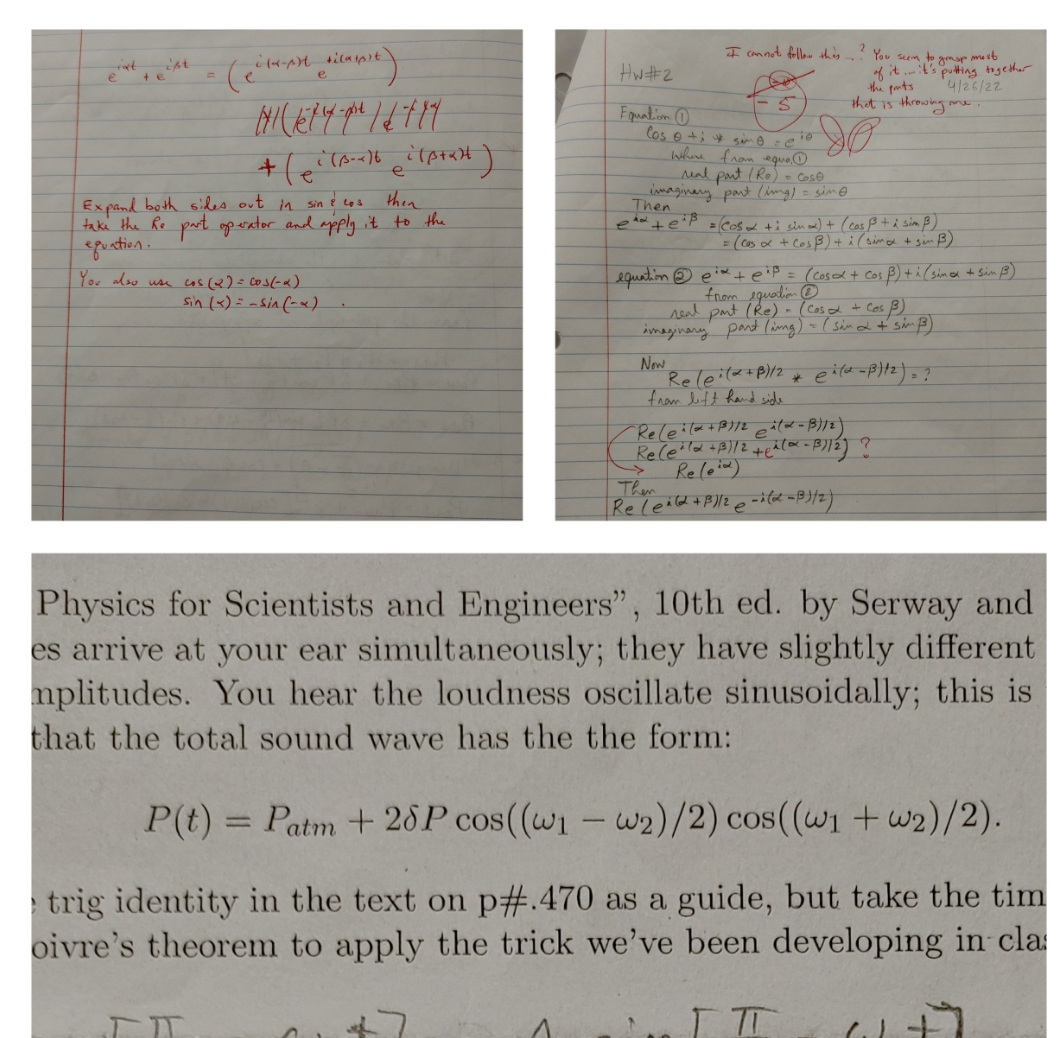 e^{iαt} + e^{iβt} = (e^{i(α-β)t} e^{+i(α+β)t})
+ (e^{i(β-α)t} e^{i(β+α)t})
Expand both sides out in sin & cos then
take the Re part operator and apply it to the
equation.
You also use cos(α) = cos(-α)
sin(α) = -sin(-α).
I cannot follow this...? You seem to grasp most
of it... it's putting together
the parts
that is throwing me.
4/26/22
HW#2
-5
Equation ①
Cos θ + i * sin θ = e^{iθ}
Where from equa ①
real part (Re) = cosθ
imaginary part (img) = sinθ
Then
e^{iα} + e^{iβ} = (cos α + i sin α) + (cos β + i sin β)
= (cos α + cos β) + i (sin α + sin β)
equation ② e^{iα} + e^{iβ} = (cos α + cos β) + i (sin α + sin β)
from equation ②
real part (Re) = (cos α + cos β)
imaginary part (img) = (sin α + sin β)
Now
Re(e^{i(α+β)/2} * e^{i(α-β)/2}) = ?
from left hand side
Re(e^{i(α+β)/2} e^{i(α-β)/2})
Re(e^{i(α+β)/2} + e^{i(α-β)/2}) ?
Re(e^{iα})
Then
Re(e^{i(α+β)/2} e^{-i(α-β)/2})
Physics for Scientists and Engineers”, 10th ed. by Serway and
es arrive at your ear simultaneously; they have slightly different
mplitudes. You hear the loudness oscillate sinusoidally; this is
that the total sound wave has the the form:
P(t) = P_{atm} + 2δP cos((ω₁ − ω₂)/2) cos((ω₁ + ω₂)/2).
trig identity in the text on p#.470 as a guide, but take the tim
oivre’s theorem to apply the trick we’ve been developing in clas